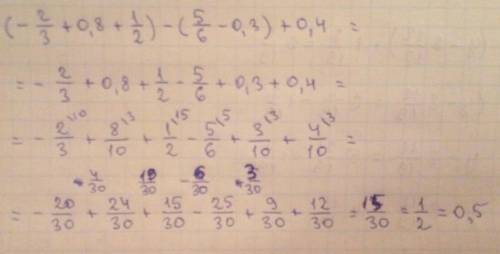 (-2/3 + 0,8 + 1/2) - (5/6 - 0,3) + 0,4 =
= - 2/3 + 0,8 + 1/2 - 5/6 + 0,3 + 0,4 =
= - 2/3 \10 + 8/10 \3 + 1/2 \15 - 5/6 \5 + 3/10 \3 + 4/10 \3 =
4/30 19/30 - 6/30 3/30
= - 20/30 + 24/30 + 15/30 - 25/30 + 9/30 + 12/30 = 15/30 = 1/2 = 0,5